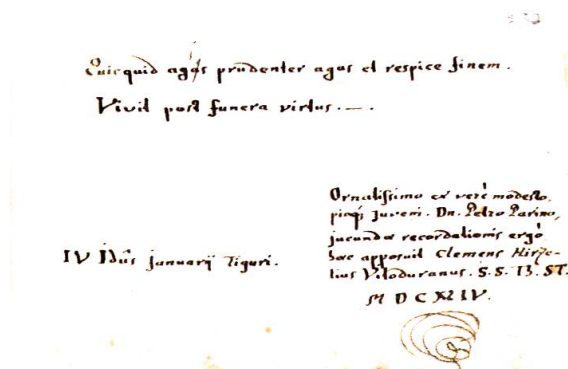 Quicquid agas prudenter agas et respice finem.
Vivit post funera virtus. —.
IV Idus januarij Tiguri.
Ornatissimo et verè modesto,
pioq; Juveni. Dn. Petro Parino,
jucundæ recordationis ergò
hæc apposuit Clemens Hirze-
lius Vitoduranus. S.S. Th. ST.
M D C XLIV.